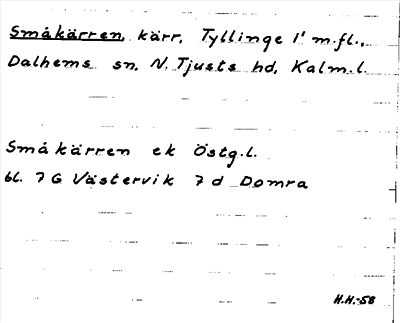 Småkärren, kärr, Tyllinge 1' m.fl.,
Dalhems sn, N. Tjusts hd, Kalm.l.
Småkärren ek Östg.l.
bl. 7 G Västervik 7 d Domra
H.H.-58